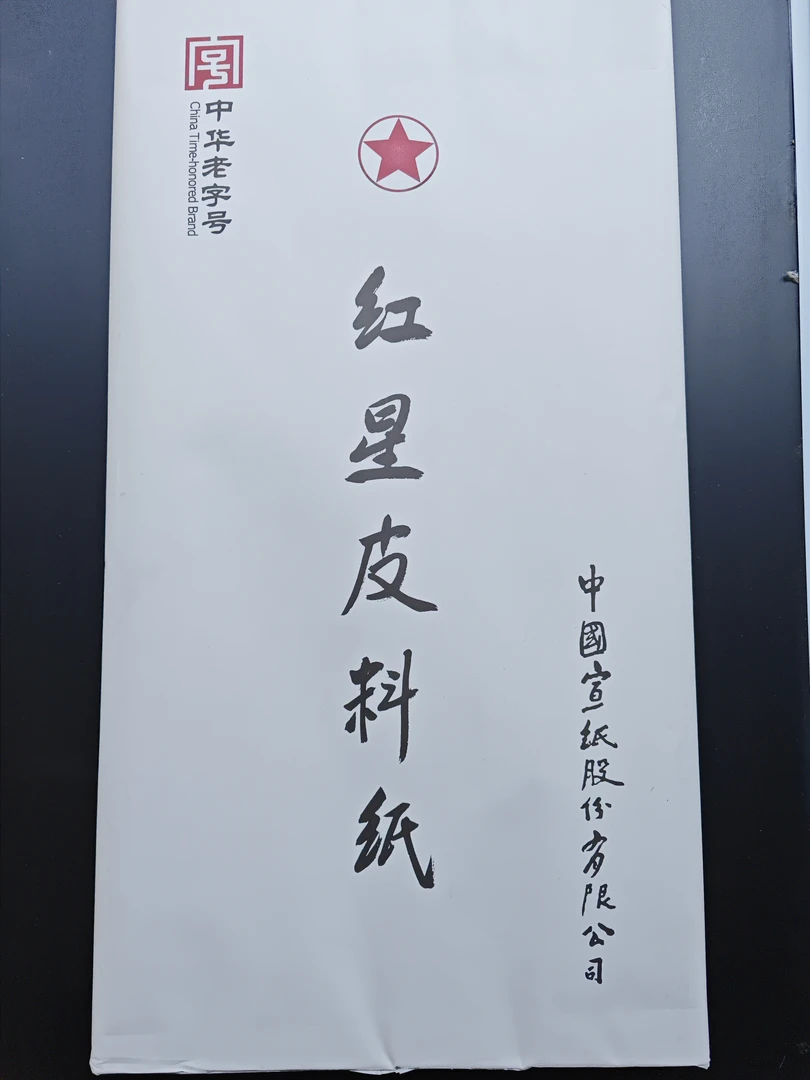 中华老字号
China Time-honored Brand
红星皮料纸
中國宣纸股份有限公司